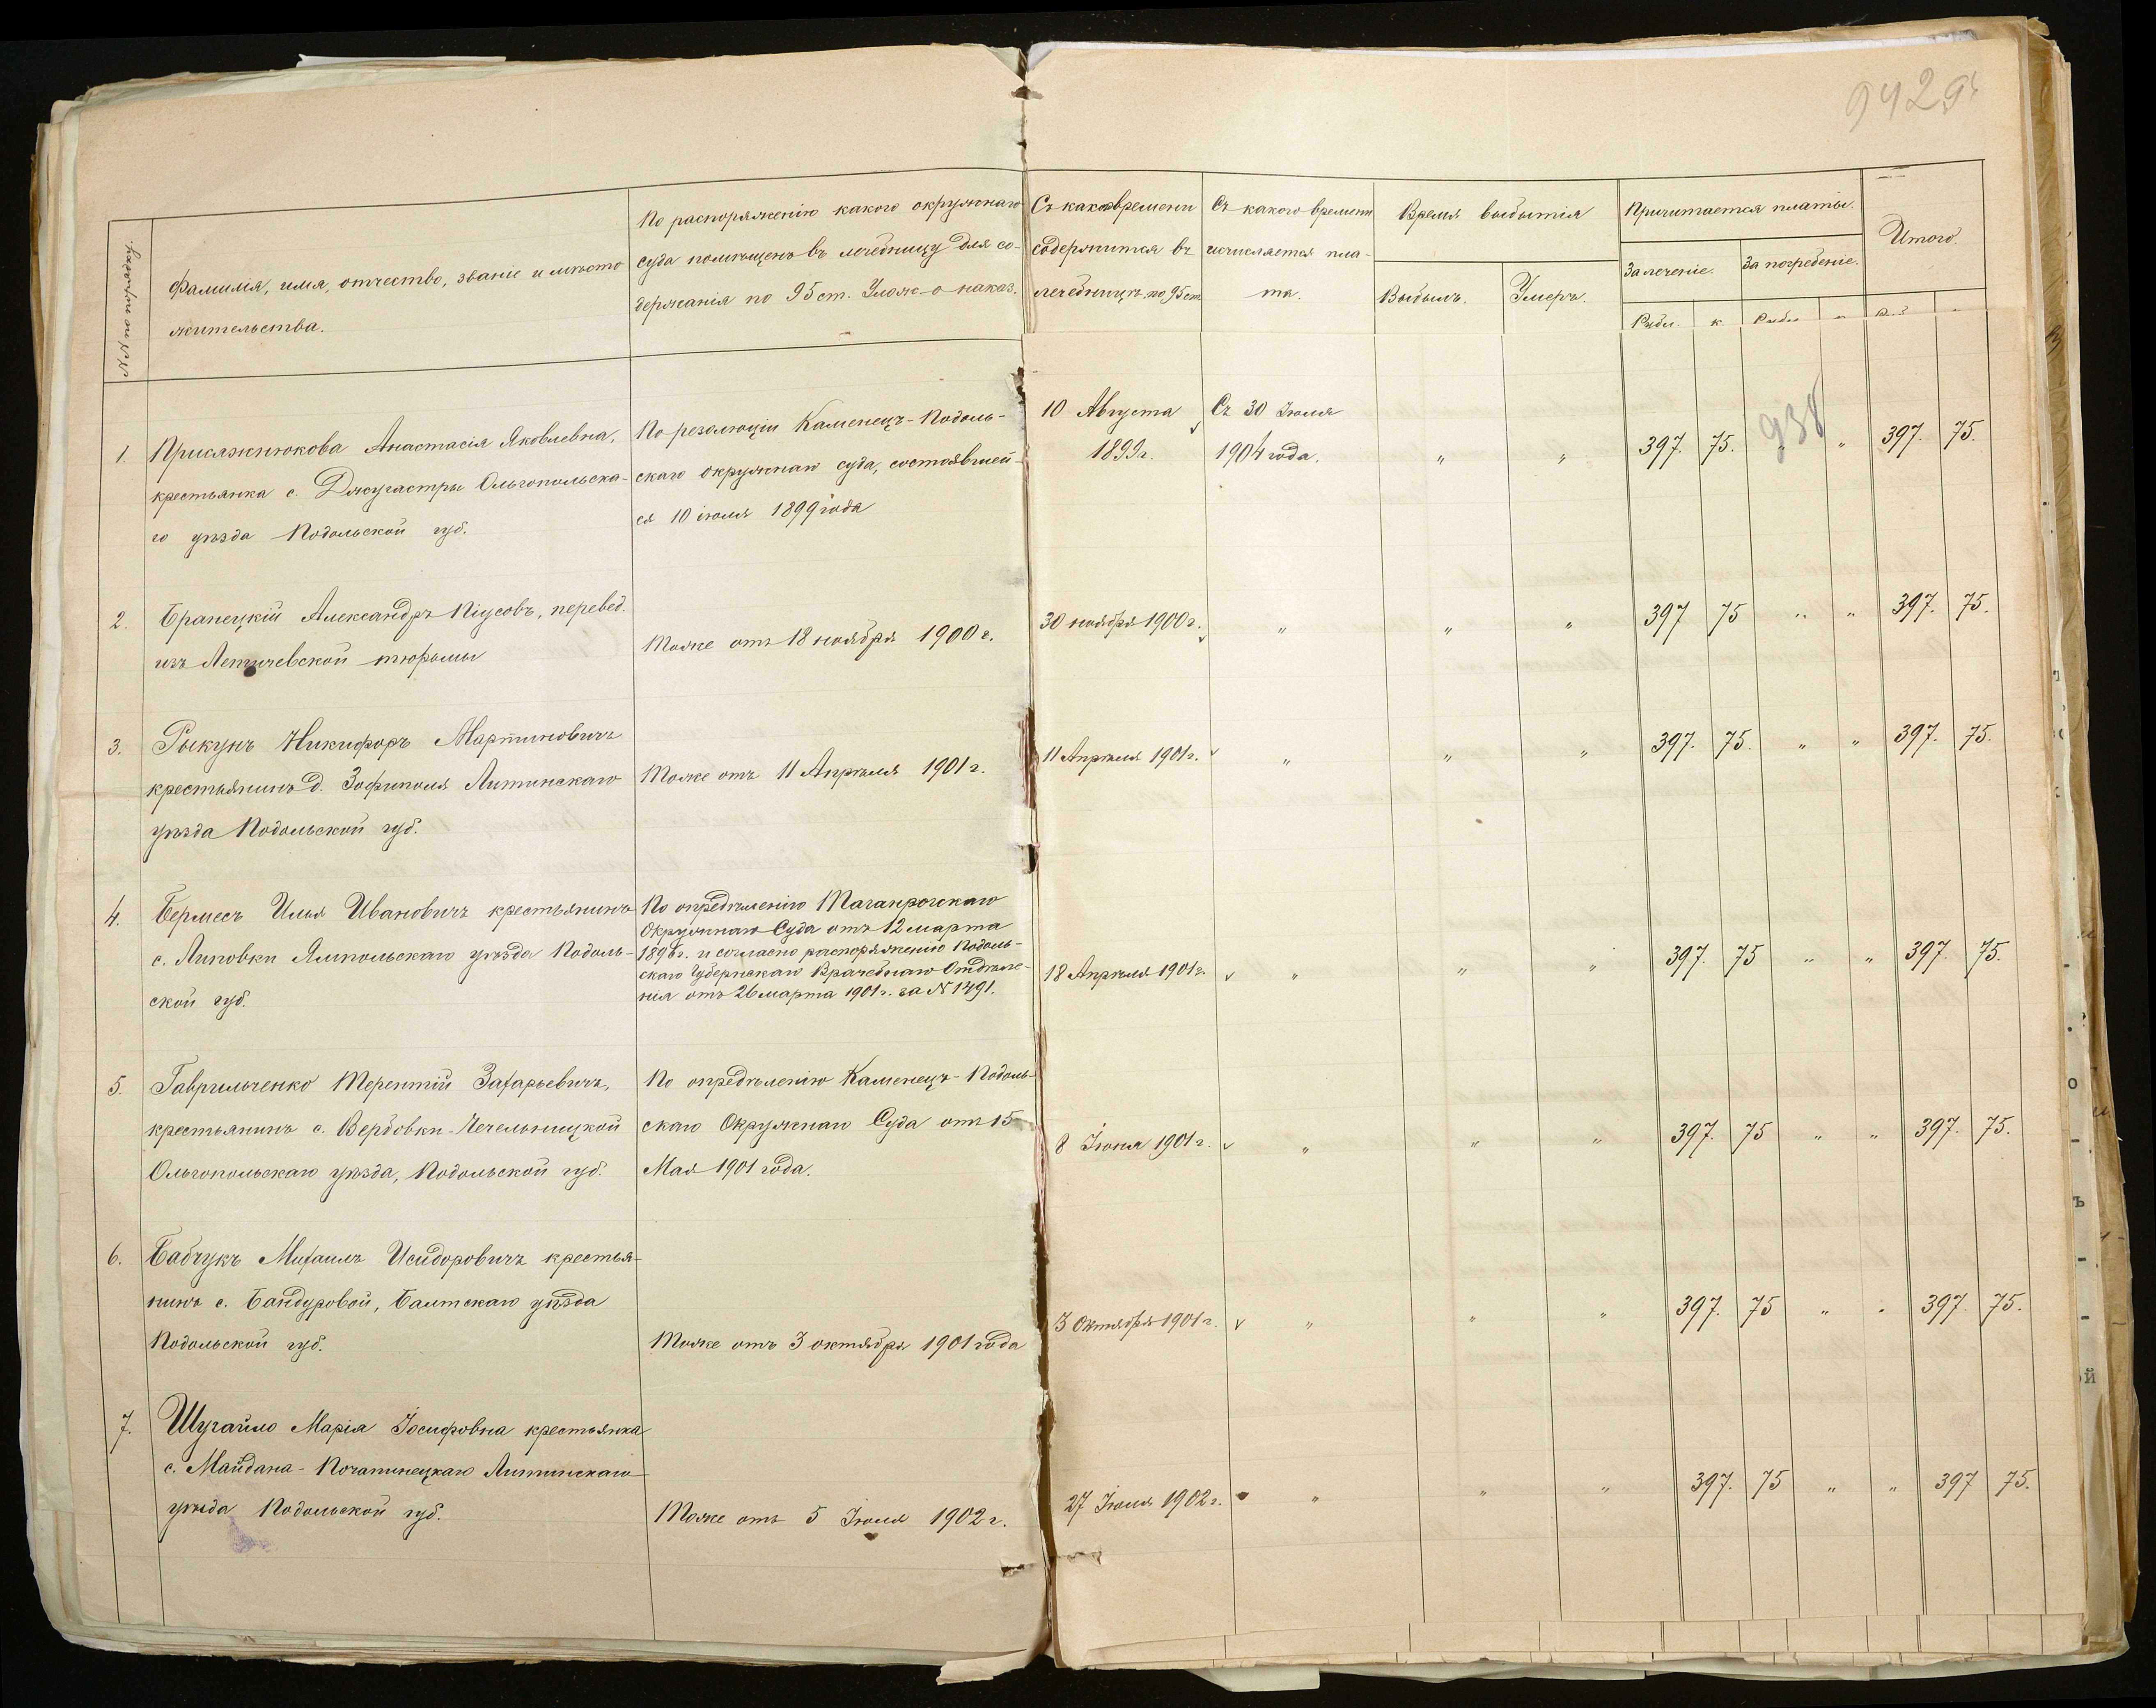 942 9
№№ по порядку.
Фамилія, имя, отчество, званіе и мѣсто
жительства.
По распоряженію какого окружнаго
суда помѣщенъ въ лечебницу для со-
держанія по 95 ст. Улож. о наказ.
Съ какого времени
содержится въ
лечебницѣ по 95 ст.
Съ какого времени
исчисляется пла-
та.
Время выбытія
Выбылъ.
Умеръ.
Причитается платы.
За леченіе.
За погребеніе.
Итого.
Рубл. к. Рубл.
1. Присяжнюкова Анастасія Яковлевна,
крестьянка с. Джугастры Ольгопольска-
го уѣзда Подольской губ.
По резолюціи Каменецъ-Подоль-
скаго окружнаго суда, состоявшей-
ся 10 іюля 1899 года
10 Августа
1899 г.
Съ 30 Іюля
1904 года.
" " 397. 75. " " 397. 75.
938
2. Бранецкій Александръ Піусовъ, перевед.
изъ Летичевской тюрьмы
Тоже отъ 18 ноября 1900 г.
30 ноября 1900 г. " " " 397 75 " " 397. 75.
3. Рыкунъ Никифоръ Мартиновичъ
крестьянинъ д. Зофиполя Литинскаго
уѣзда Подольской губ.
Тоже отъ 11 Апрѣля 1901 г.
11 Апрѣля 1901 г. " " " 397. 75. " " 397. 75.
4. Бермесъ Илья Ивановичъ крестьянинъ
с. Липовки Ямпольскаго уѣзда Подоль-
ской губ.
По опредѣленію Таганрогскаго
Окружнаго Суда отъ 12 марта
г. и согласно распоряженію Подоль-
скаго Губернскаго Врачебнаго Отдѣле-
нія отъ 26 марта 1901 г. за № 1491.
18 Апрѣля 1901 г. " " " 397. 75 " " 397. 75.
5. Гаврильченко Терентій Захарьевичъ,
крестьянинъ с. Вербовки-Чечельницкой
Ольгопольскаго уѣзда, Подольской губ.
По опредѣленію Каменецъ-Подоль-
скаго Окружнаго Суда отъ 15
Мая 1901 года.
8 Іюня 1901 г. " " " 397. 75 " " 397. 75.
6. Бабчукъ Михаилъ Исидоровичъ крестья-
нинъ с. Бандуровой, Балтскаго уѣзда
Подольской губ.
Тоже отъ 3 октября 1901 года
3 Октября 1901 г. " " " 397. 75 " " 397. 75.
7. Шугайло Марія Іосифовна крестьянка
с. Майдана-Почапинецкаго Литинскаго
уѣзда Подольской губ.
Тоже отъ 5 Іюля 1902 г.
27 Іюля 1902 г. " " " 397. 75 " " 397 75.